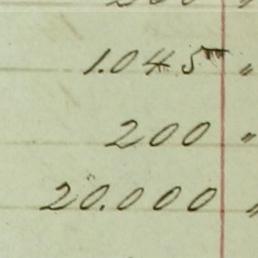 1.045 "
200 "
20.000 "